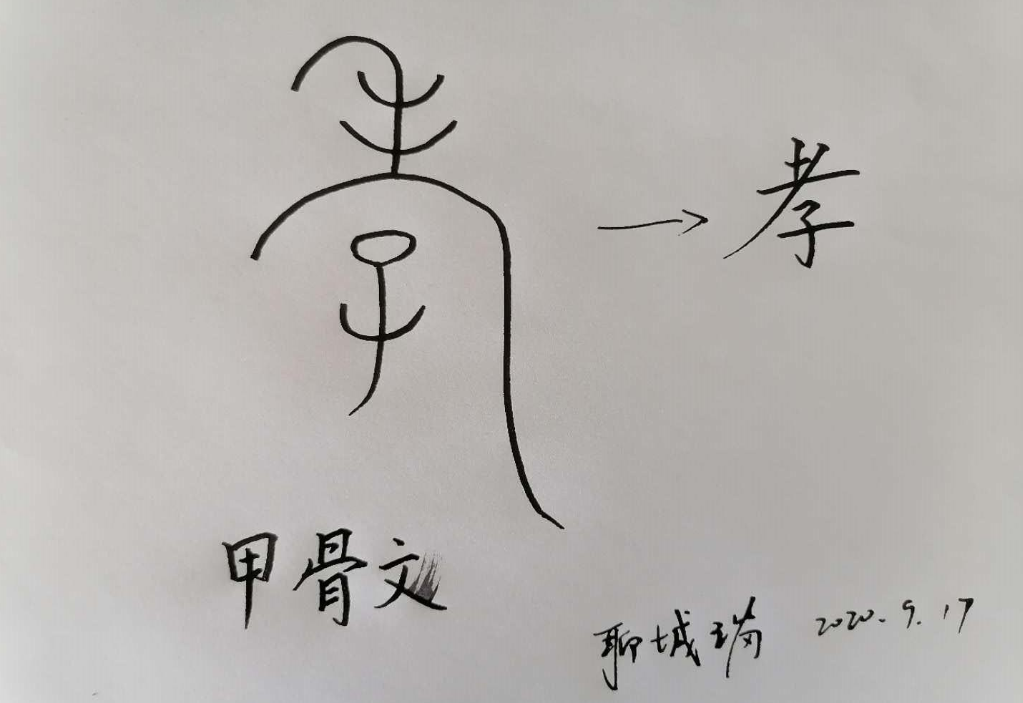 →孝
甲骨文
聊城瑞 2020.9.17